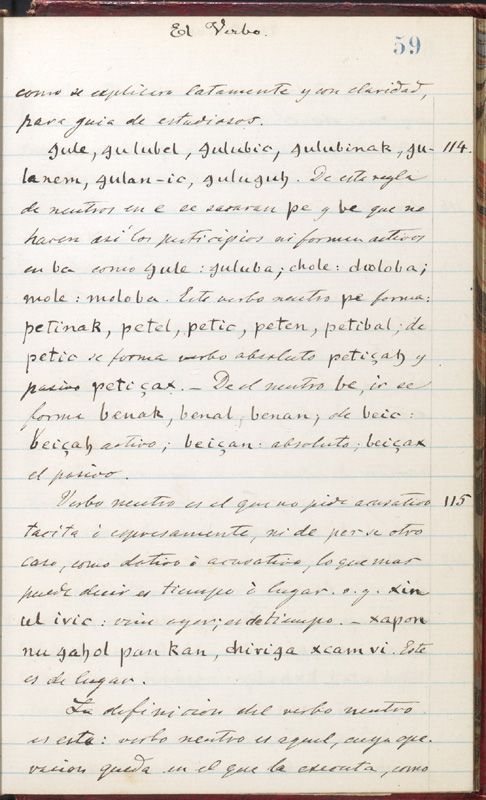 El Verbo.
59
como se esplicara latamente y con claridad,
para guia de estudiosos.
gule, gulubel, gulubic, gulubinak, gu- 114.
lanem, gulan-ic, guluguh. De este regla
de neutros en e se sacaran pe y be que no
hacen asi los participios ni forman activos
en ba como gule: guluba; chole: choloba;
mole: moloba. Este verbo neutro pe forma:
petinak, petel, petic, peten, petibal; de
petic se forma verbo absoluto petiçah y
pasivo petiçax. — De el neutro be, ir se
forma benak, benal, benan; de beic:
beiçah activo; beiçan: absoluto; beiçax
el pasivo.
Verbo neutro es el que no pide acusativo 115
tacita ó espresamente, ni de per se otro
caso, como dativo ó acusativo, lo que mas
puede decir es tiempo ó lugar. v.g. xin
ul ivic: vine ayer; es de tiempo. — xapon
nu gahol pan kan, chiriga xcamvi. Este
es de lugar.
La definicion del verbo neutro
es esta: verbo neutro es aquel, cuya ope-
racion queda en el que la executa, como